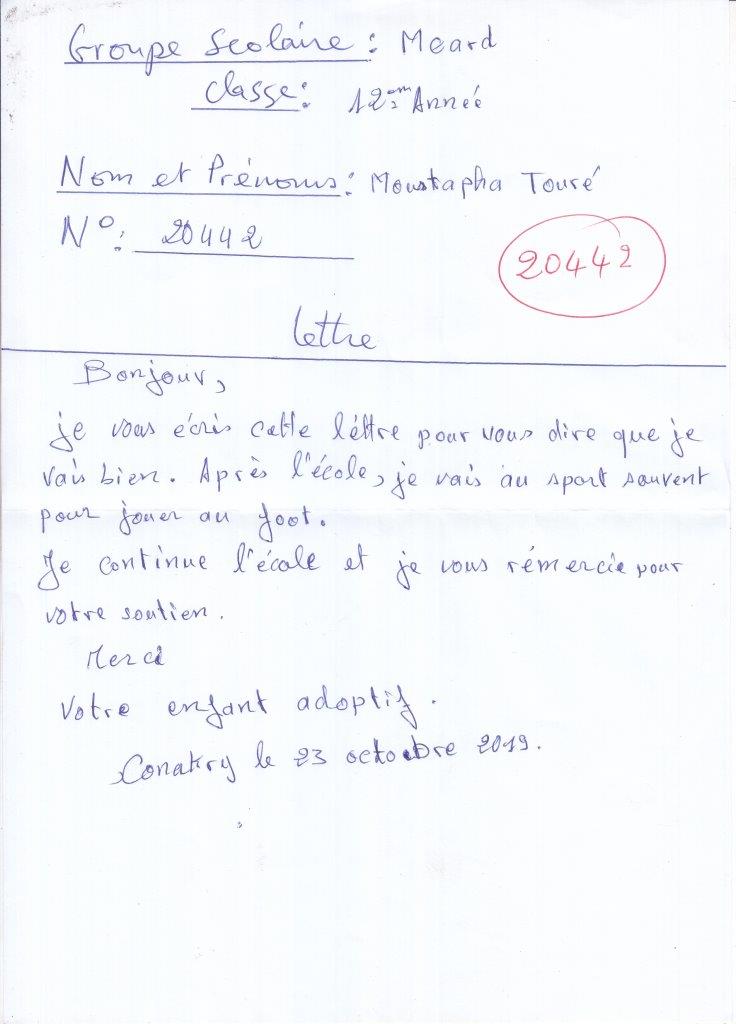 Groupe Scolaire : Meard
Classe : 12ème Année
Nom et Prénoms : Moustapha Touré
N° : 20442
20442
lettre
Bonjour,
je vous écris cette léttre pour vous dire que je
vais bien. Après l'école, je vais au sport souvent
pour jouer au foot.
Je continue l'école et je vous rémercie pour
votre soutien.
Merci
Votre enfant adoptif.
Conakry le 23 octobre 2019.